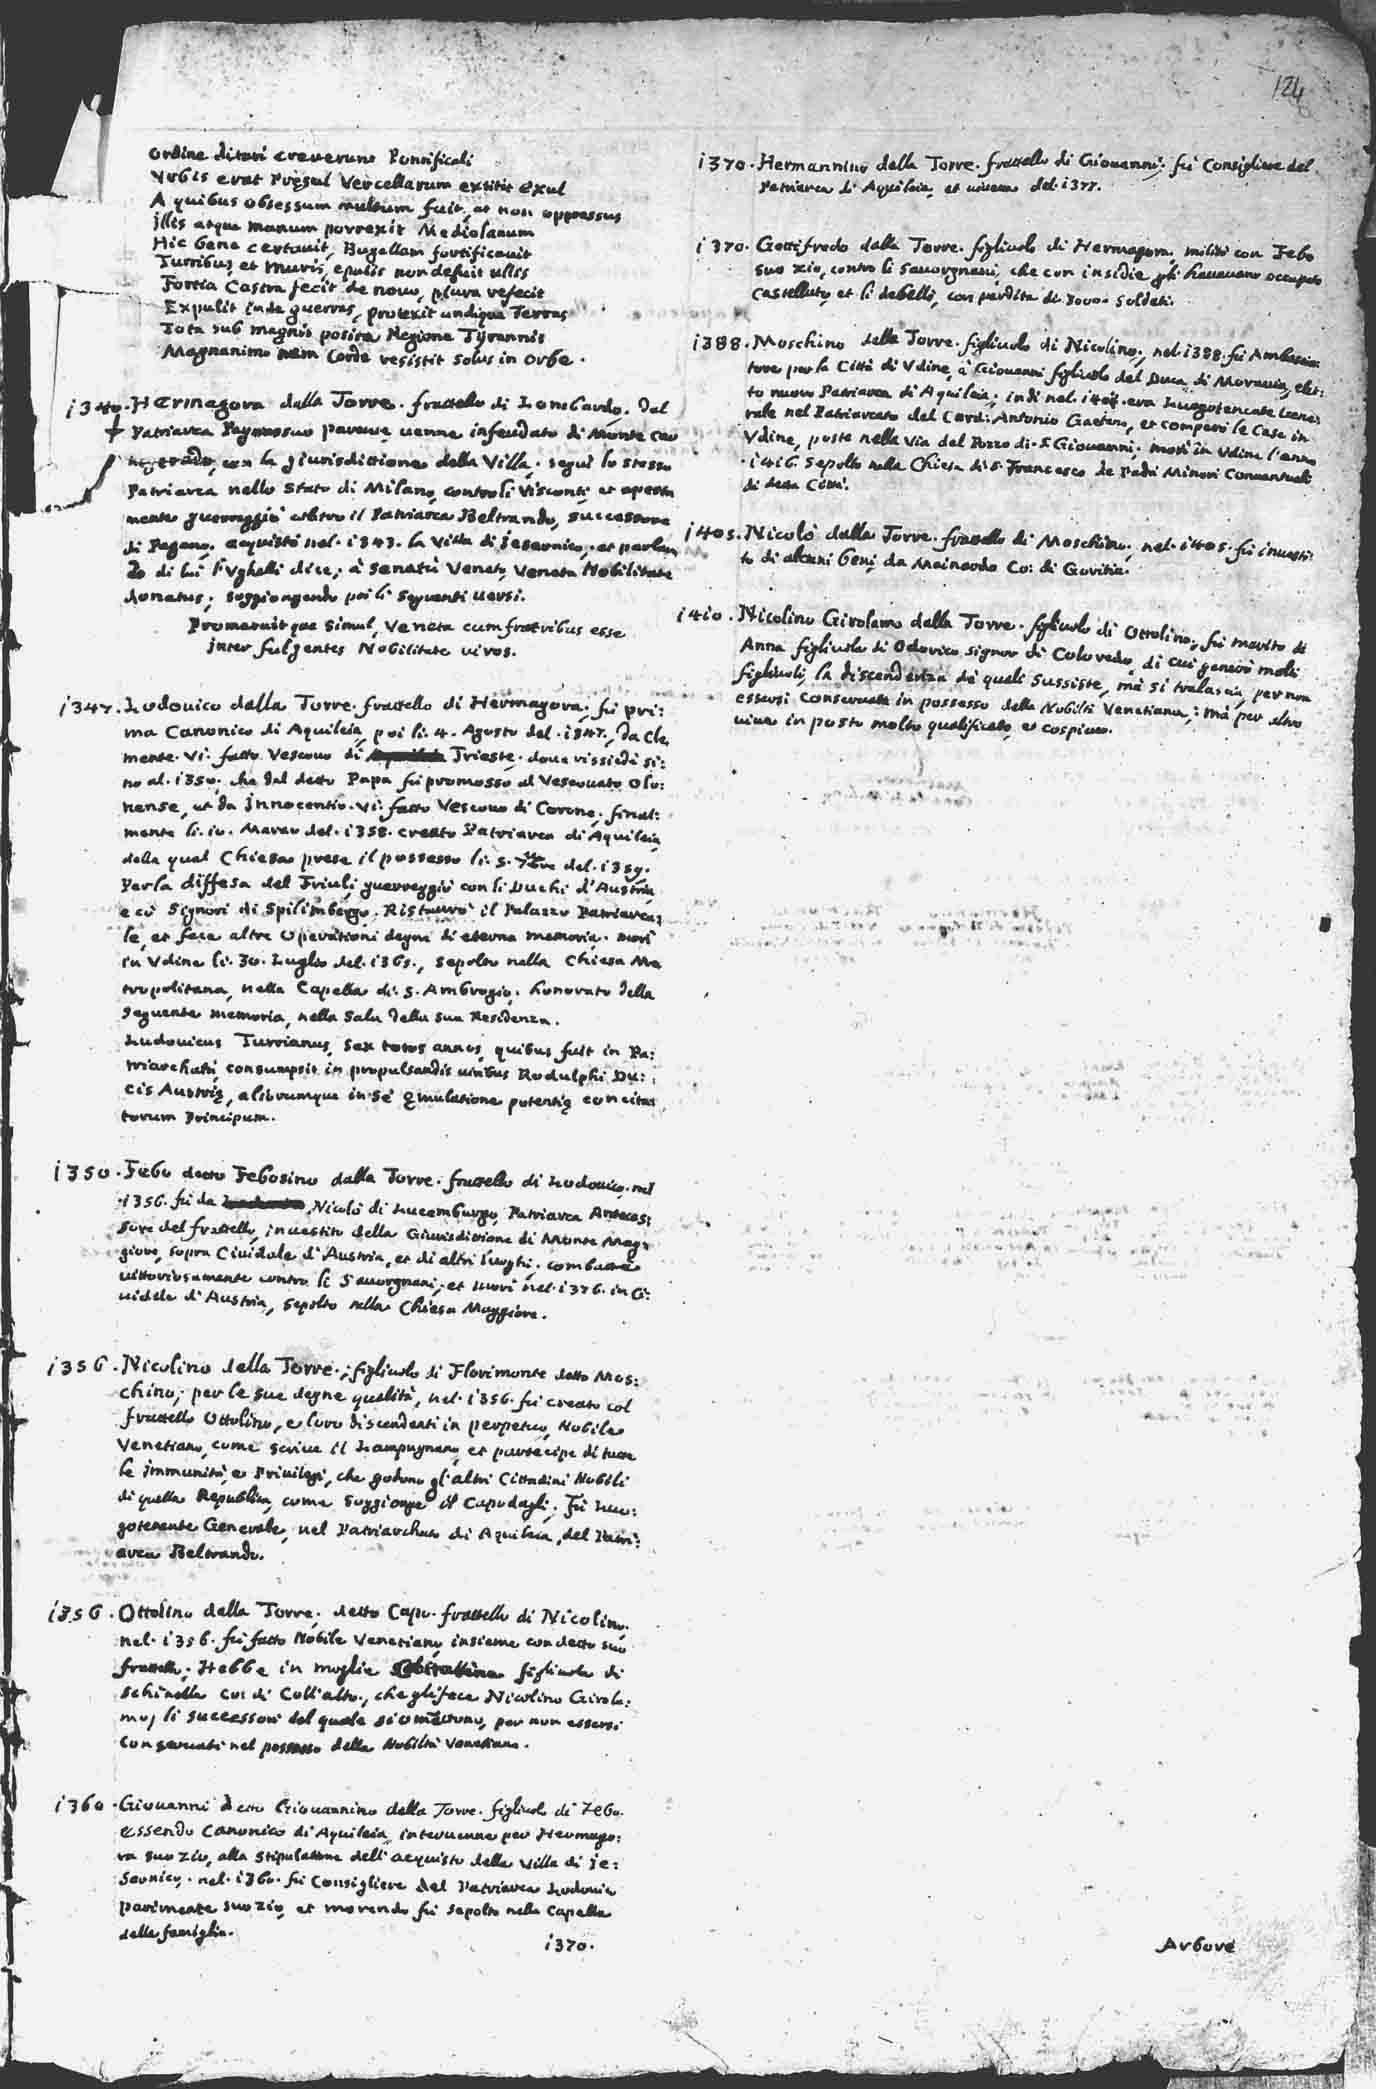 124
Ordine ditari creverunt Pontificali
Vrbis erat Pręsul Vercellarum extitit exul
A quibus obsessum multum fuit, at non oppressus
Illis atque manum porrexit Mediolanum
Hic bene certavit, Bugellam fortificavit
Turribus, et muris, epulis non defuit ullis
Fortia Castra fecit de novo, plura refecit
Expulit inde guerras, protexit undique Terras
Tota sub magnis posita Regione Tyrannis
Magnanimo nam Corde resistit solus in Orbe.
1340. Hermagora della Torre. frattello di Lombardo. Dal
Patriarca Pagano suo parente venne infeudato di Monte
con la giurisdittione della Villa. seguì lo stesso
Patriarca nello Stato di Milano, contro li Visconti, et aperta
mente guerreggiò contro il Patriarca Beltrando, successore
di Pagano. acquistò nel. 1343. la Villa di Jesernico, et parlan
do di lui l'Vghelli dice; à Senatù Veneto Veneta Nobilitate
donatus; soggiongendo poi li seguenti versi.
Promeruitque simul, Veneta cum fratribus esse
Inter fulgentes Nobilitate viros.
1347. Lodovico della Torre. frattello di Hermagora. fù pri:
ma Canonico di Aquileia, poi li. 4. Agosto del. 1347., da Cle
mente. VI. fatto Vescovo di Trieste. dove rissiedè si:
no al. 1350. che dal detto Papa fù promosso al Vescovato Olo:
nense, et da Innocentio. VI. fatto Vescovo di Corone, final:
mente li. 10. Marzo del. 1358. creato Patriarca di Aquileia,
della qual Chiesa prese il possesso li. 5. 7bre del. 1359.
Per la diffesa del Friuli, guerreggiò con li Duchi d'Austria,
e cò Signori di Spilimbergo. Ristaurò il Palazzo Patriarca:
le, et fece altre Operationi degne di eterna memoria. morì
in Vdine li. 30. Luglio del. 1365., sepolto nella Chiesa Me
tropolitana, nella Capella di. S. Ambrogio. honorato della
seguente memoria, nella Sala della sua Residenza.
Ludovicus Turrianus, sex totos annos, quibus fuit in Pa:
triarchatù, consumpsit in propulsandis viribus Rodulphi Du:
cis Austrię, aliorumque in se ęmulatione potentię concita:
torum Principum.
1350. Febo detto Febosino della Torre. frattello di Lodovico. nel
1356. fù da Nicolò di Lucemburgo, Patriarca Anteces:
sore del frattello, investito della Giurisdittione di Monte Mag:
giore, sopra Cividale d'Austria, et di altri luoghi. combattè
vittoriosamente contro li Savorgnani, et morì nel. 1376. in Ci:
vidale d'Austria, sepolto nella Chiesa Maggiore.
1356. Nicolino della Torre., figliuolo di Florimonte detto Mos:
chino; per le sue degne qualità, nel. 1356. fù creato col
frattello Ottolino, e loro discendenti in perpetuo, Nobile
Venetiano, come scrive il Lampugnano, et partecipe di tutte
le Immunità, e Privilegi, che godono gl'altri Cittadini Nobili
di quella Republica, come soggionge il Capodagli. Fù Luo:
gotenente Generale, nel Patriarchato di Aquileia, del Patri:
arca Beltrando.
1356. Ottolino della Torre. detto Capo. frattello di Nicolino,
nel. 1356. fù fatto Nobile Venetiano, insieme con detto suo
frattello. Hebbe in moglie figliuola di
Schinella Co: di Coll'alto., che gli fece Nicolino Girola:
mo, li successori del quale si omettono, per non essersi
conservati nel possesso della Nobiltà Venetiana.
1360. Giovanni detto Giovannino della Torre. figliuolo di Febo.
essendo Canonico di Aquileia, intervenne per Hermago:
ra suo zio, alla stipulatione dell'acquisto della Villa di Je:
sernico. nel. 1360. fù Consigliere del Patriarca Lodovico
parimente suo zio, et morendo fù sepolto nella Capella
della famiglia.
1370.
1370. Hermannino della Torre. frattello di Giovanni. fù Consigliere del
Patriarca di Aquileia, et viveva del. 1377.
1370. Gottifredo della Torre. figliuolo di Hermagora. militò con Febo
suo zio, contro li Savorgnani, che con insidie gli havevano occupato
Castelluto, et li debellò, con perdita di 3000. Soldati.
1388. Moschino della Torre. figliuolo di Nicolino., nel. 1388. fù Ambascia:
tore per la Città di Vdine, à Giovanni figliuolo del Duca di Moravia, elet:
to nuovo Patriarca di Aquileia; indi nel. era Luogotenente Gene:
rale nel Patriarcato del Card: Antonio Gaetano, et comperò le Case in
Vdine, poste nella Via del Pozzo di. S. Giovanni. morì in Vdine l'anno
1416. sepolto nella Chiesa di S. Francesco de Padri Minori Conventuali
di detta Città.
1405. Nicolò della Torre. frattello di Moschino. nel. 1405. fù investi:
to di alcuni beni da Mainardo Co: di Goritia.
1410. Nicolino Girolamo della Torre. figliuolo di Ottolino, fù marito di
Anna figliuola di Odorico Signor di Coloredo, di cui generò molti
figliuoli, la discendenza de quali sussiste, mà si tralascia, per non
essersi conservata in possesso della Nobiltà Venetiana.; mà per altro
vive in posto molto qualificato, et cospicuo.
Arbore